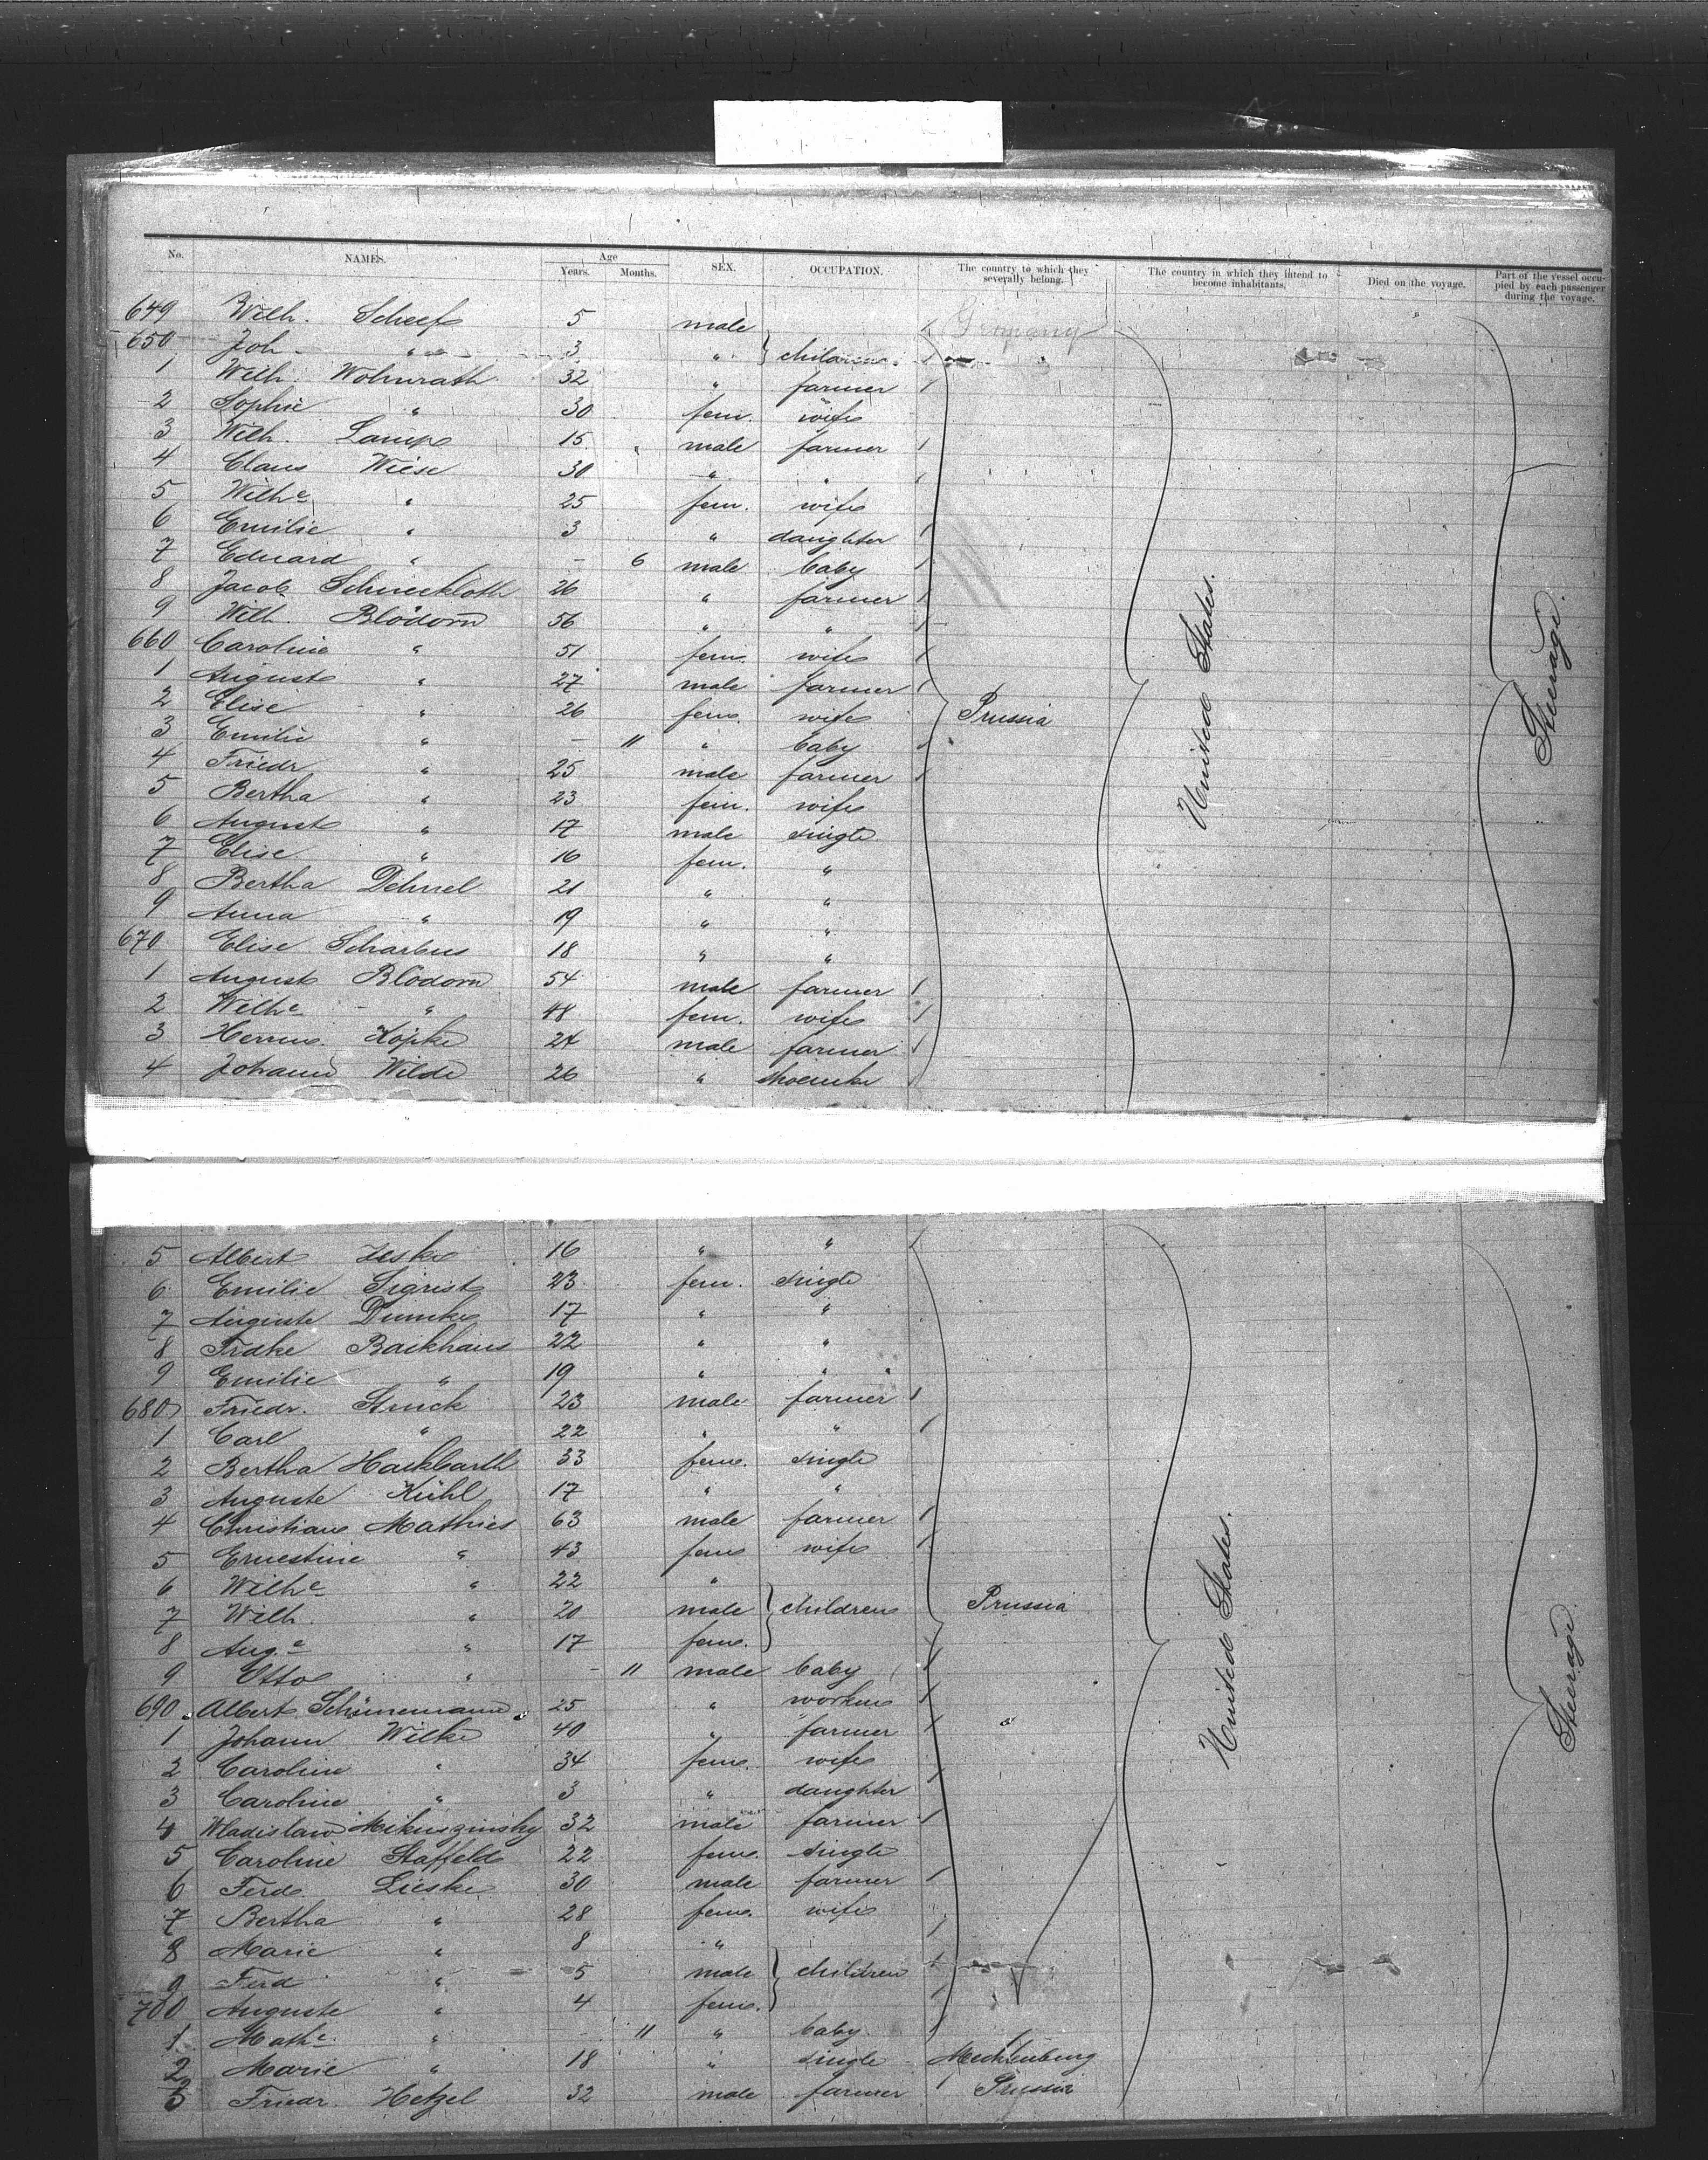 No. NAMES. Age Years. Months. SEX. OCCUPATION. The country to which they severally belong. The country in which they intend to become inhabitants. Died on the voyage. Part of the vessel occupied by each passenger during the voyage.
649 Wilh. Scheef 5 male Germany
650 Joh. " 3 " children
1 Wilh. Wohnrath 32 " farmer
2 Sophie " 30 fem. wife
3 Wilh. Lamp 15 male farmer
4 Claus Wiese 30 " "
5 Wilhe " 25 fem. wife
6 Emilie " 3 " daughter
7 Eduard " - 6 male baby
8 Jacob Schneekloth 26 " farmer
9 Wilh. Blödorn 56 " "
660 Caroline " 51 fem. wife
1 August " 27 male farmer
2 Elise " 26 fem. wife Prussia United States. Steerage.
3 Emilie " - 11 " baby
4 Friedr " 25 male farmer
5 Bertha " 23 fem. wife
6 August " 17 male single
7 Elise " 16 fem. "
8 Bertha Dehnel 21 " "
9 Anna " 19 " "
670 Elise Scharbus 18 " "
1 August Blödorn 54 male farmer
2 Wilhe " 48 fem. wife
3 Herm. Köpke 24 male farmer
4 Johann Wilde 26 "
5 Albert Jeske 16 " "
6 Emilie Sigrist 23 fem. single
7 Auguste Dumke 17 " "
8 Frdke Backhaus 22 " "
9 Emilie " 19 " "
680 Friedr. Struck 23 male farmer
1 Carl " 22 " "
2 Bertha Hackbarth 33 fem. single
3 Auguste Kühl 17 " "
4 Christian Mathies 63 male farmer
5 Ernestine " 43 fem wife
6 Wilhe " 22 "
7 Wilh. " 20 male children Prussia United States. Steerage.
8 Auge " 17 fem.
9 Otto " - 11 male baby
690 Albert Schünemann 25 " worker
1 Johann Wilke 40 " farmer "
2 Caroline " 34 fem. wife
3 Caroline " 3 " daughter
4 Wladislaw Mikuszinsky 32 male farmer
5 Caroline Staffeld 22 fem. single
6 Ferd. Lieske 30 male farmer
7 Bertha " 28 fem. wife
8 Marie " 8 "
9 Ferd " 5 male children
700 Auguste " 4 fem.
1 Mathe " - 11 " baby
2 Marie " 18 " single Mecklenburg
3 Friedr. Hetzel 32 male farmer Prussia